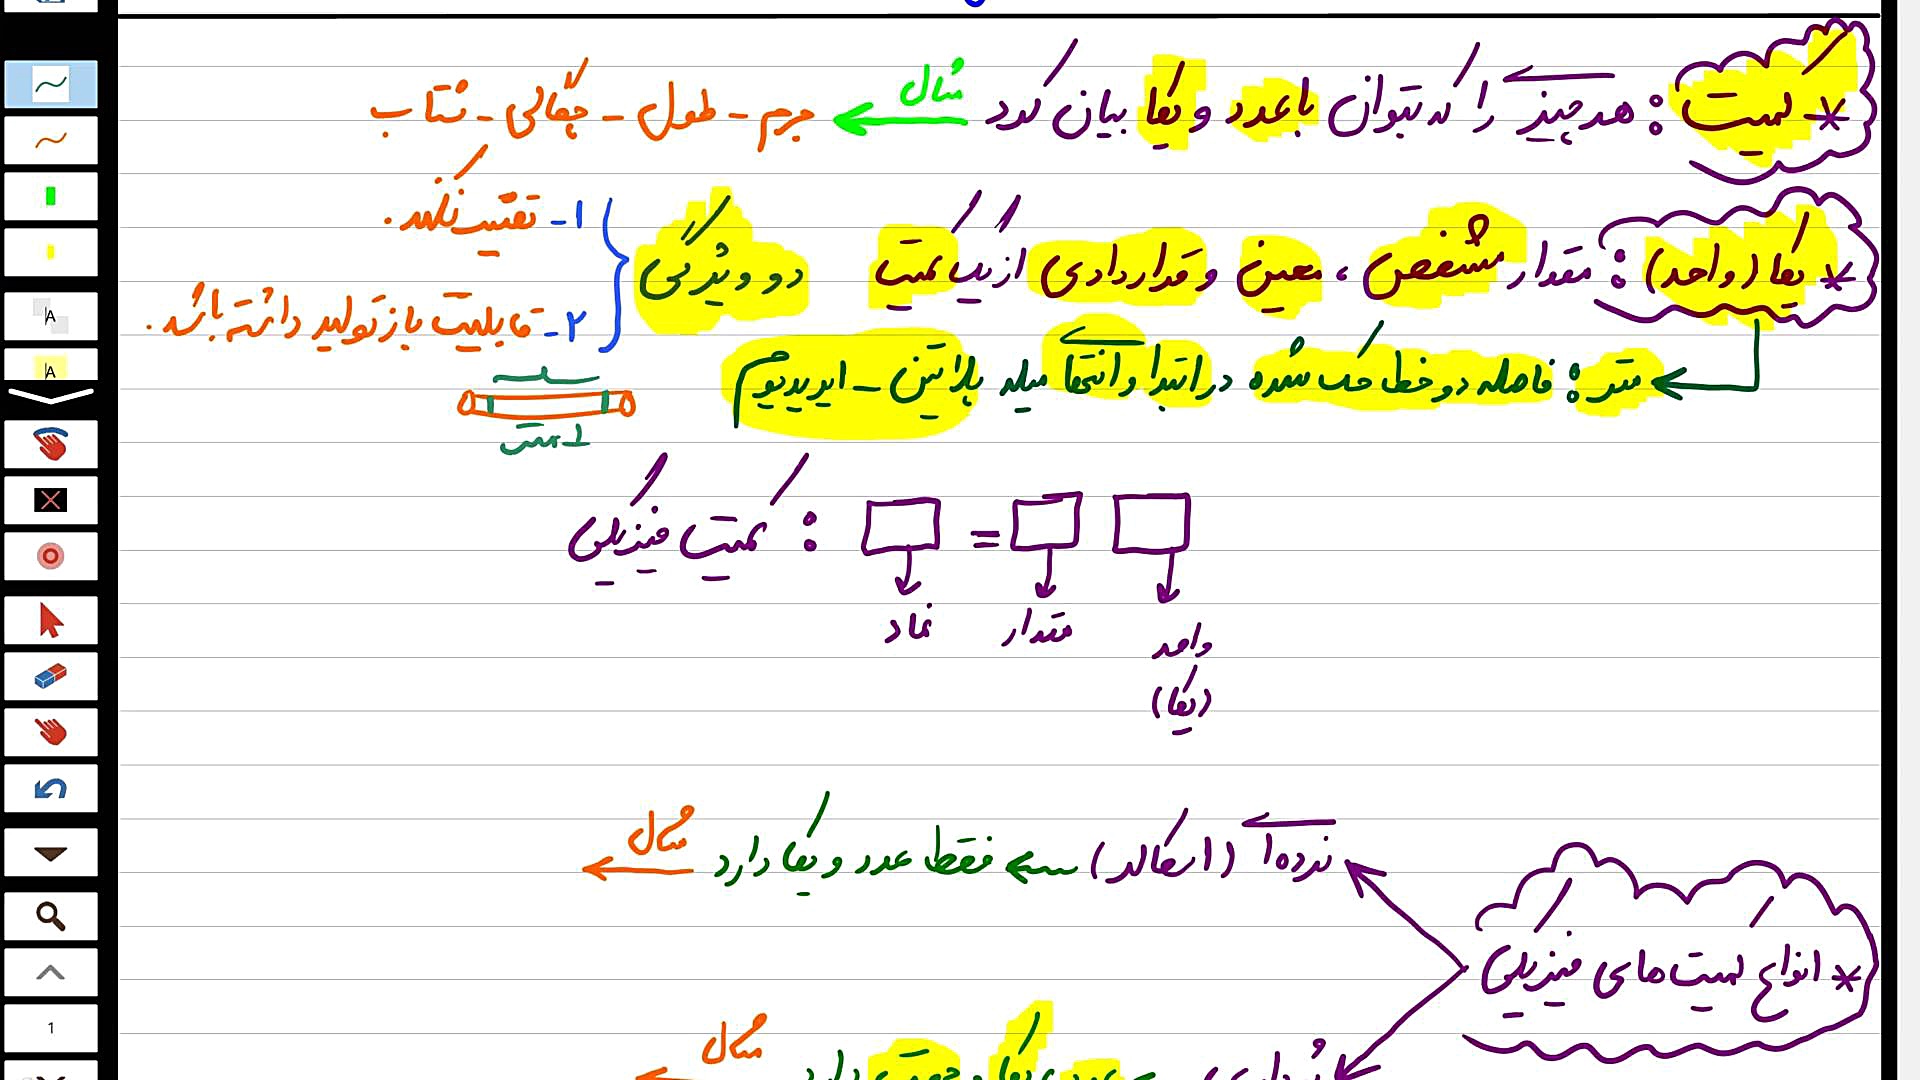 * کمیت : هر چیزی را که بتوان با عدد و یکا بیان کرد مثال جرم - طول - چگالی - شتاب
* یکا (واحد) : مقدار مشخص ، معین و قراردادی از یک کمیت دو ویژگی
۱- تغییر نکند.
۲- قابلیت باز تولید داشته باشد.
متر : فاصله دو خط حک شده در ابتدا و انتها میله پلاتین - ایریدیوم
1 متر
کمیت فیزیکی : =
نماد مقدار واحد
(یکا)
نرده‌ای (اسکالر) فقط عدد و یکا دارد مثال
* انواع کمیت های فیزیکی
برداری عدد، یکا و جهت دارد مثال
A
A
1